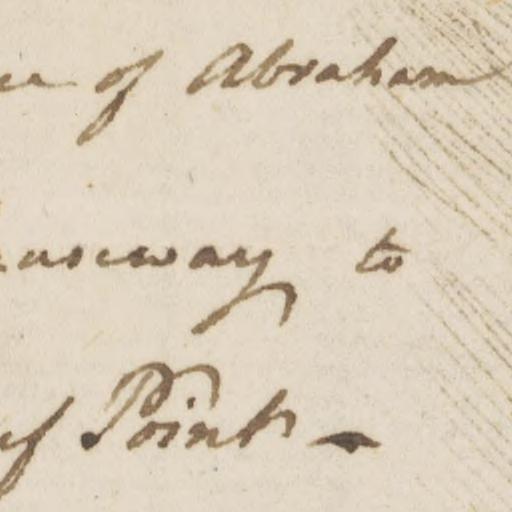 of Abraham
causeway to
of Point -